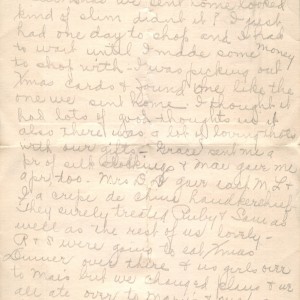 we sent home looked
kind of slim didn't it? I just
had one day to shop and I had
money
to wait until I made some
to shop with. I was picking out
Xmas cards & found one like the
one we sent home. I thought it
had lots of good thoughts in it
also there was a lot of loving thots
with our gifts - Grace sent me a
pr of silk stockings & Mae gave me
a pr, too. Mrs D. gave each M, L &
I a crepe de chine handkerchief.
They surely treated Ruby & as
well as the rest of us lovely -
R & S were going to eat Xmas
Dinner over there & us girls over
to Mae's but we changed plans & we
all ate over to